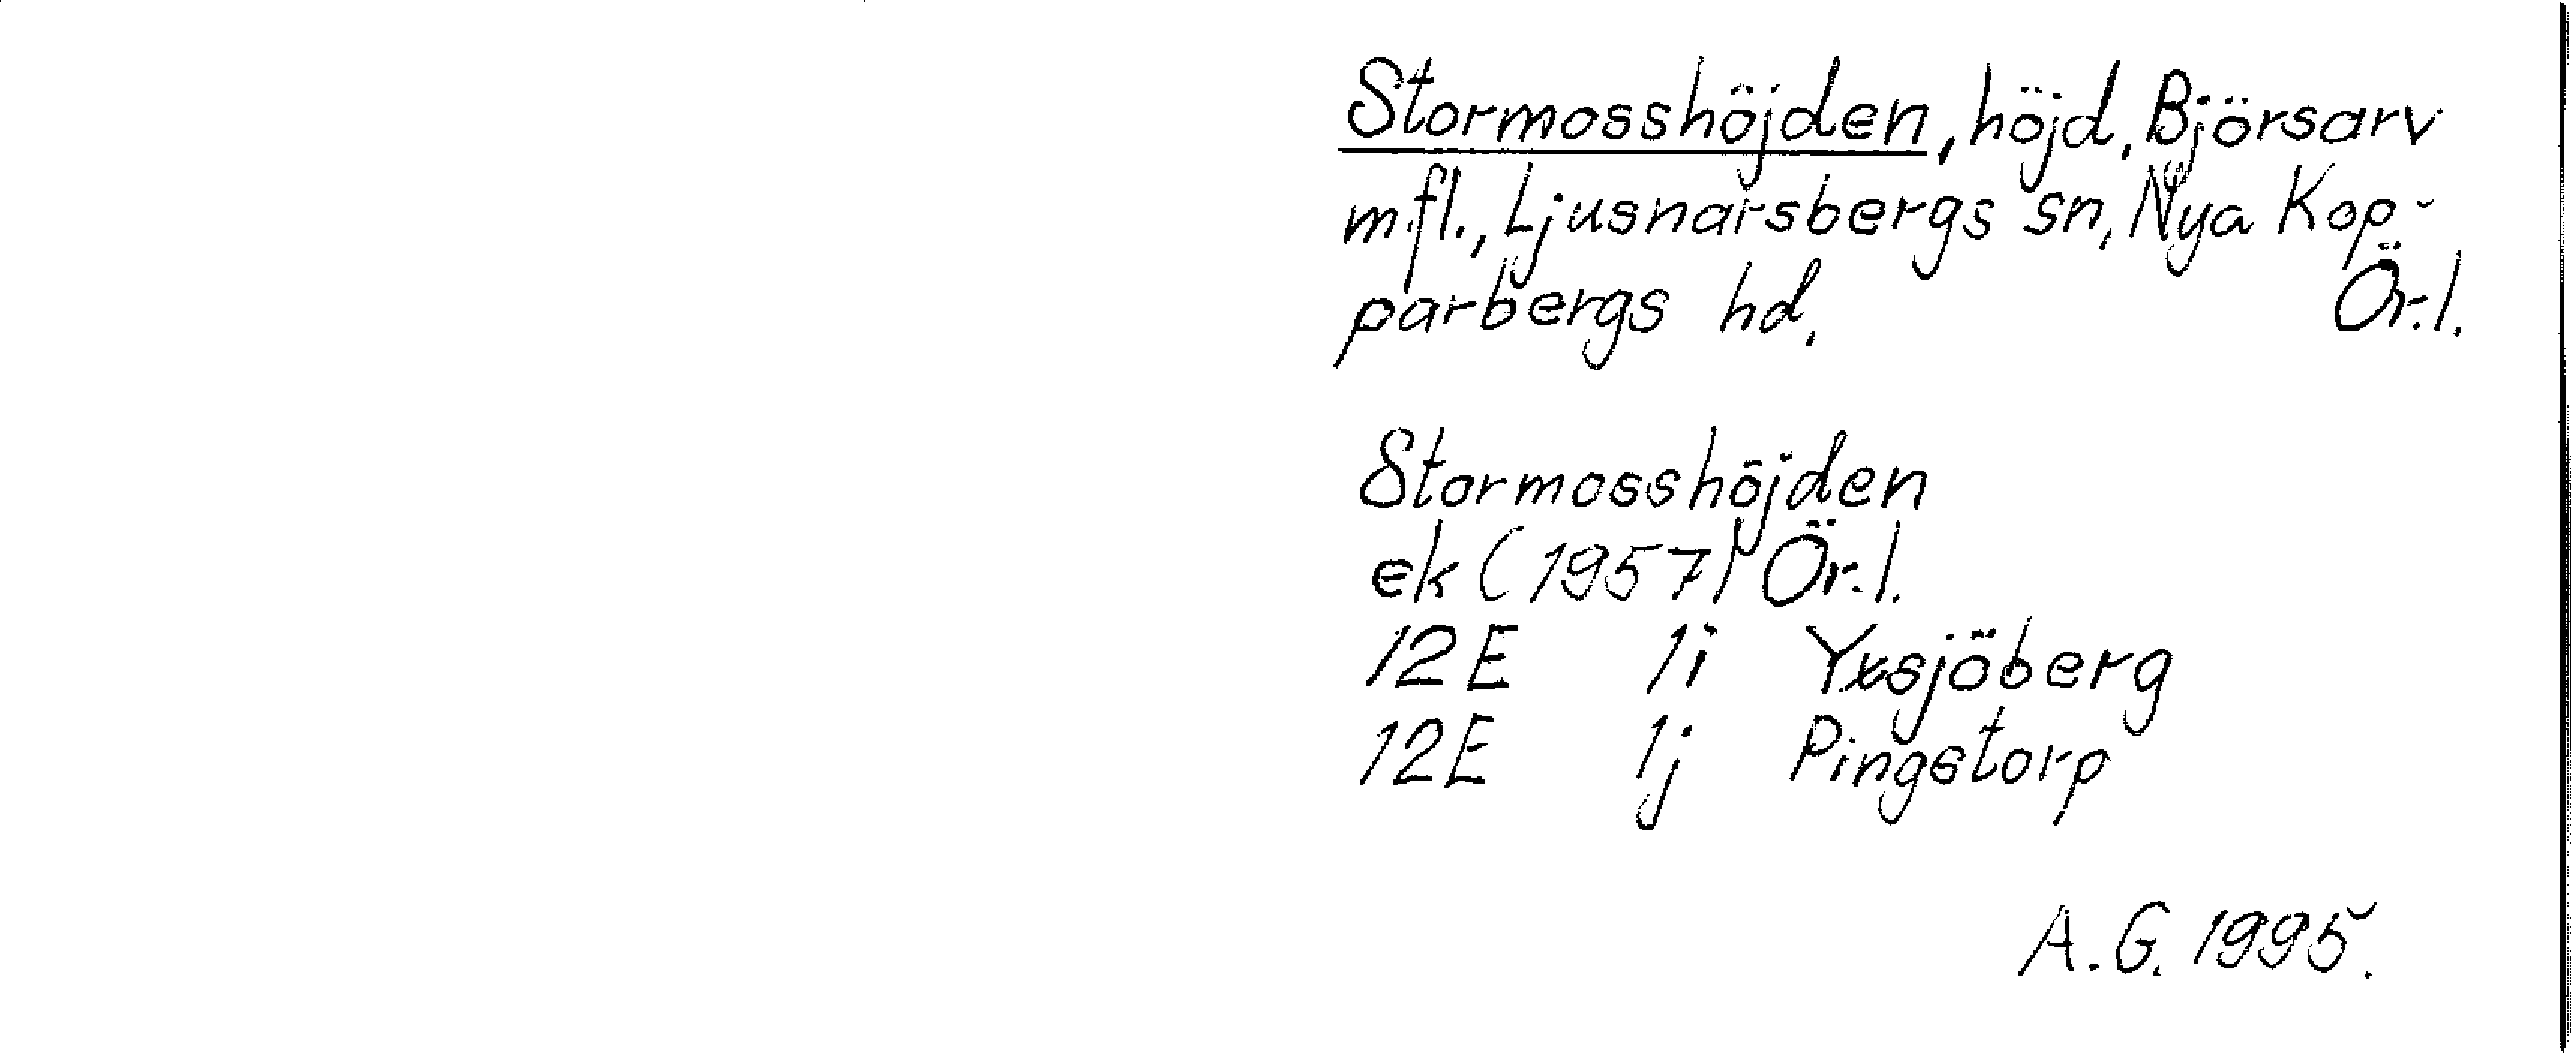 Stormosshöjden, höjd, Björsarv
m.fl., Ljusnarsbergs sn, Nya Kop-
parbergs hd. Ör.l.
Stormosshöjden
ek (1957) Ör.l.
12E 1i Yxsjöberg
12E 1j Pingstorp
A.G. 1995.